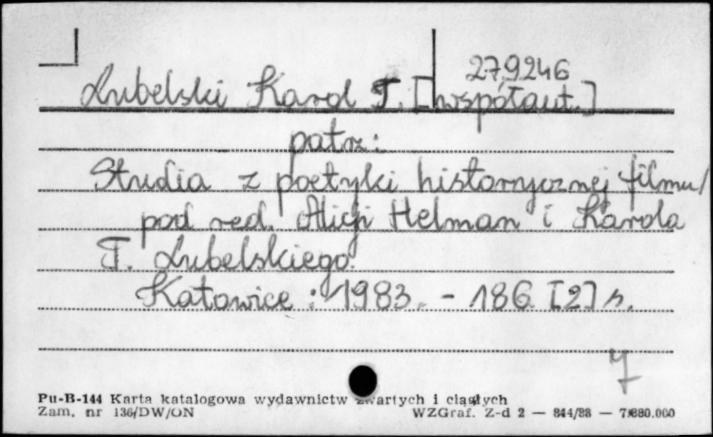 279246
Lubelski Karol T. [współaut.]
patrz:
Studia z poetyki historycznej filmu/
pod red. Alicji Helman i Karola
T. Lubelskiego.
Katowice : 1983. - 186 [2] s.
7
Pu-B-144 Karta katalogowa wydawnictw zwartych i ciągłych
Zam. nr 136/DW/ON WZGraf. Z-d 2 — 844/88 — 7.880.000